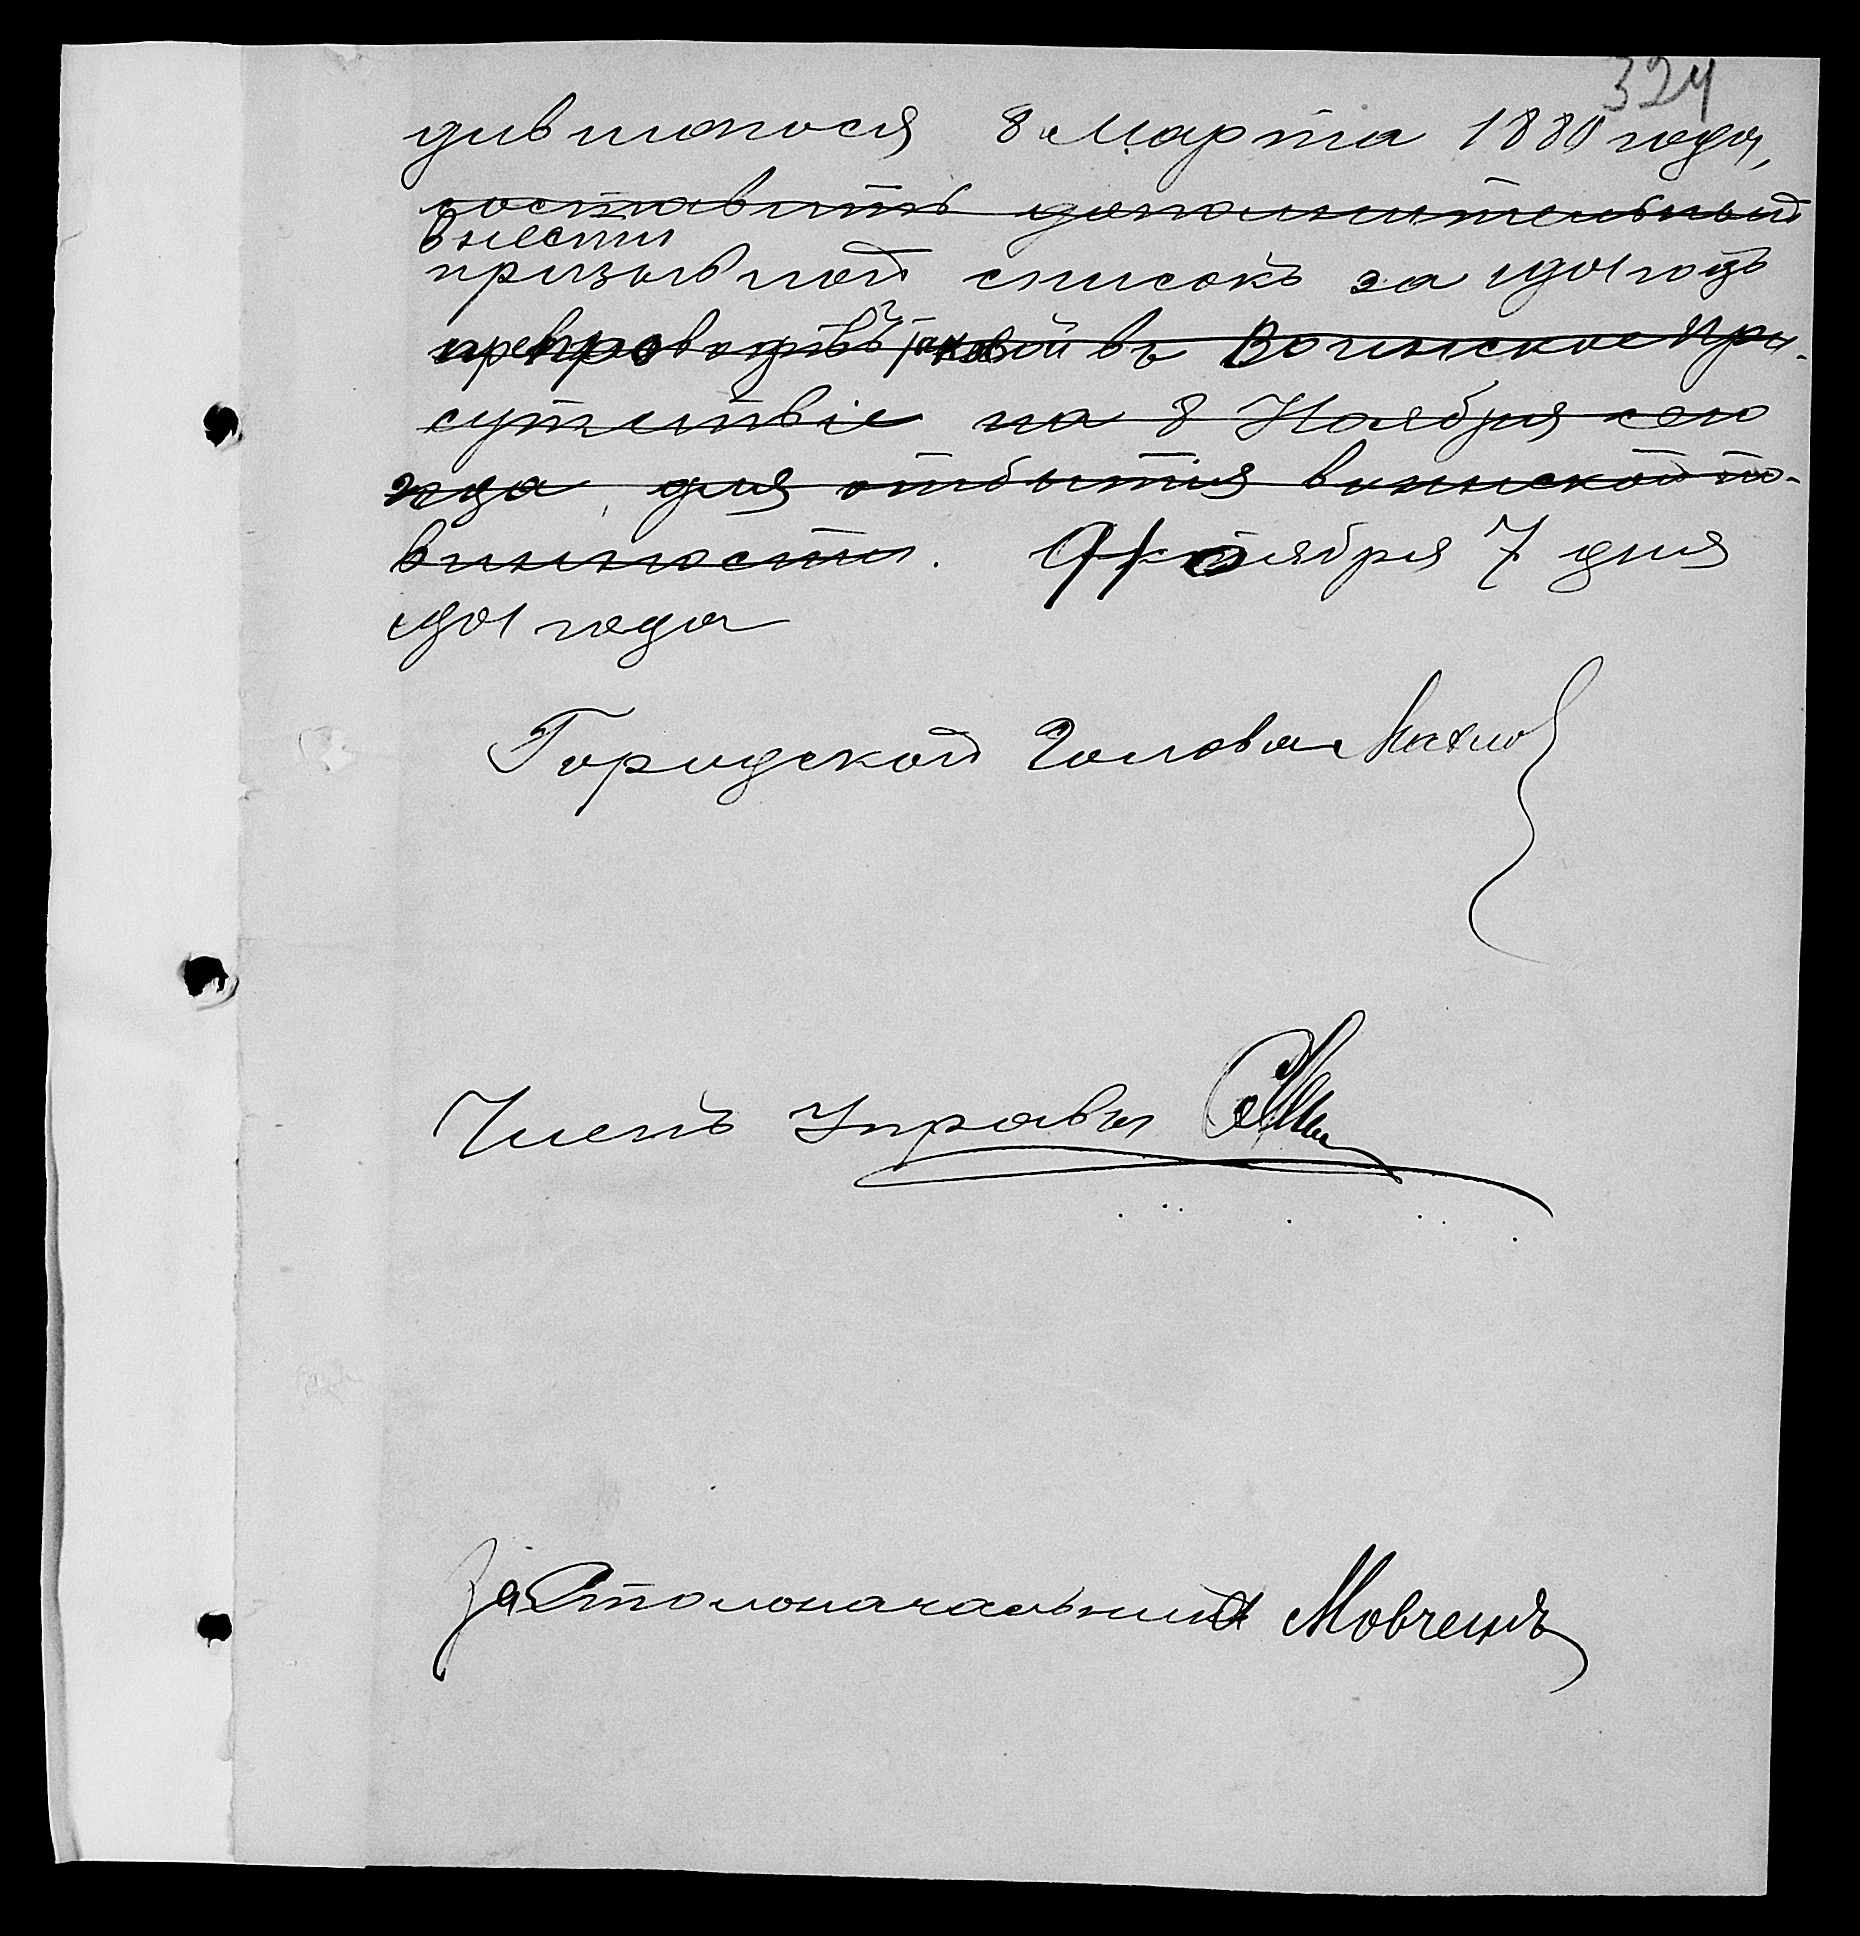 324
дившагося 8 Марта 1880 года,
составить дополнительный
внести
призывной списокъ за 1901 годъ
препроводивъ таковой въ Воинское При-
сутствіе на 8 Ноября сего
года, для отбытія воинской по-
винности. Октября 7 дня
1901 года
Городской Голова
Членъ Управы
За Столоначальника Мовчанъ